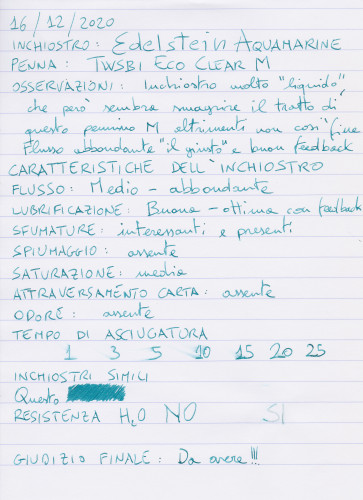 16/12/2020
INCHIOSTRO: Edelstein AQUAMARINE
PENNA: TWSBI ECO CLEAR M
OSSERVAZIONI: Inchiostro molto "liquido",
che però sembra smagrire il tratto di
questo pennino M altrimenti non così fine
Flusso abbondante "il giusto" e buon feedback
CARATTERISTICHE DELL'INCHIOSTRO
FLUSSO: Medio - abbondante
LUBRIFICAZIONE: Buona - ottima con feedback
SFUMATURE: interessanti e presenti
SPIUMAGGIO: assente
SATURAZIONE: media
ATTRAVERSAMENTO CARTA: assente
ODORE: assente
TEMPO DI ASCIUGATURA
1 3 5 10 15 20 25
INCHIOSTRI SIMILI
Questo
RESISTENZA H2O NO SI
GIUDIZIO FINALE: Da avere!!!